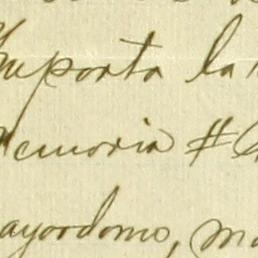 Importa la
memoria #
ayordomo, ma